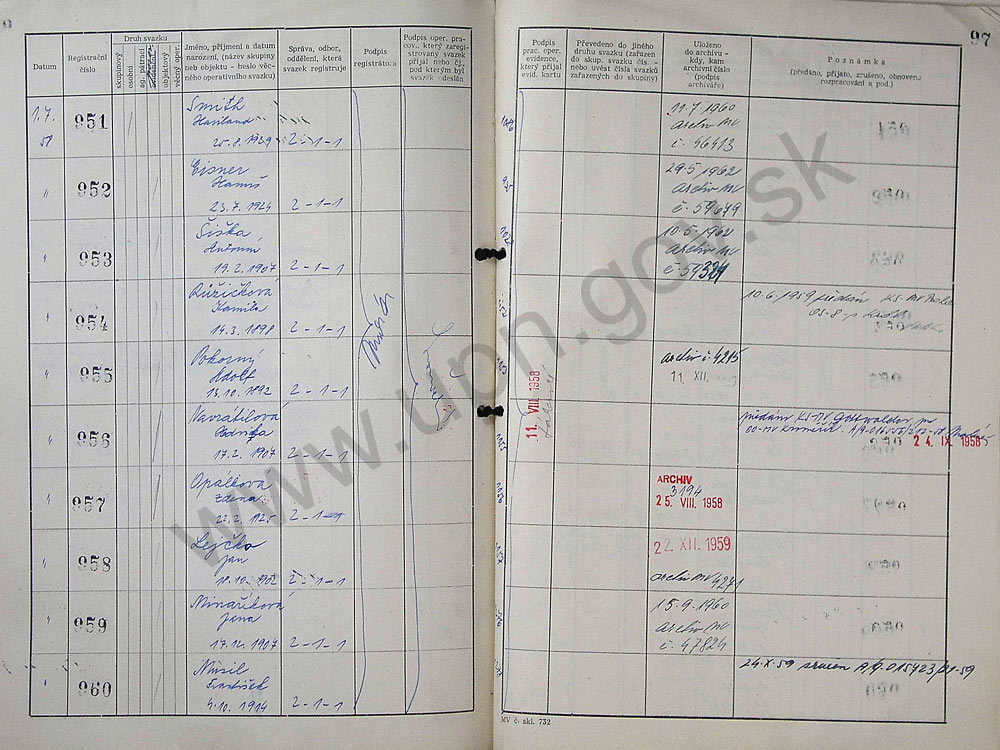 97
Datum
Registrační číslo
Druh svazku
skupinový
osobní
ag. pátrací
objektový
věcný oper.
Jméno, příjmení a datum
narození, (název skupiny
neb objektu - heslo věc-
ného operativního svazku)
Správa, odbor,
oddělení, která
svazek registruje
Podpis
registrátora
Podpis oper. prac-
cov., který zaregi-
strovaný svazek
přijal nebo čj.,
pod kterým byl
svazek odeslán
Podpis
prac. oper.
evidence,
který přijal
evid. kartu
Převedeno do jiného
druhu svazku (zařazen
do skup. svazku čís. -
nebo uvést čísla svazků
zařazených do skupiny)
Uloženo
do archivu -
kdy, kam
archivní číslo
(podpis
archiváře)
Poznámka
(předáno, přijato, zrušeno, obnoveno
rozpracování a pod.)
1.7. 951 Smith
25.8.1929 2-1-1
11.7.1960
Archiv MV
č. 46413
" 952 Eisner
Hanuš
23.7.1924 2-1-1
29.5.1962
Archiv MV
č. 59679
" 953 Šiška
Antonín
19.2.1907 2-1-1
10.5.1962
Archiv MV
" 954 Růžičková
Kamila
14.3.1898 2-1-1
10.6.1959 předán KS-MV Praha
" 955 Pokorný
Adolf
13.10.1892 2-1-1
archiv č. 4215
11 XII.
11. VIII. 1958
" 956 Navrátilová
17.2.1907 2-1-1
předán KS-MV Gottwaldov
24. IX. 1958
" 957 Opálková
Zdena
22.2.1925 2-1-1
ARCHIV
3194
25. VIII. 1958
" 958 Lejčko
Jan
18.10.1902 2-1-1
22. XII. 1959
archiv MV 4271
" 959 Minaříková
Jana
17.12.1907 2-1-1
15.9.1960
Archiv MV
č. 47824
960 Musil
František
4.10.1914 2-1-1
24.X.59 svazek
MV č. skl. 732
www.upn.gov.sk